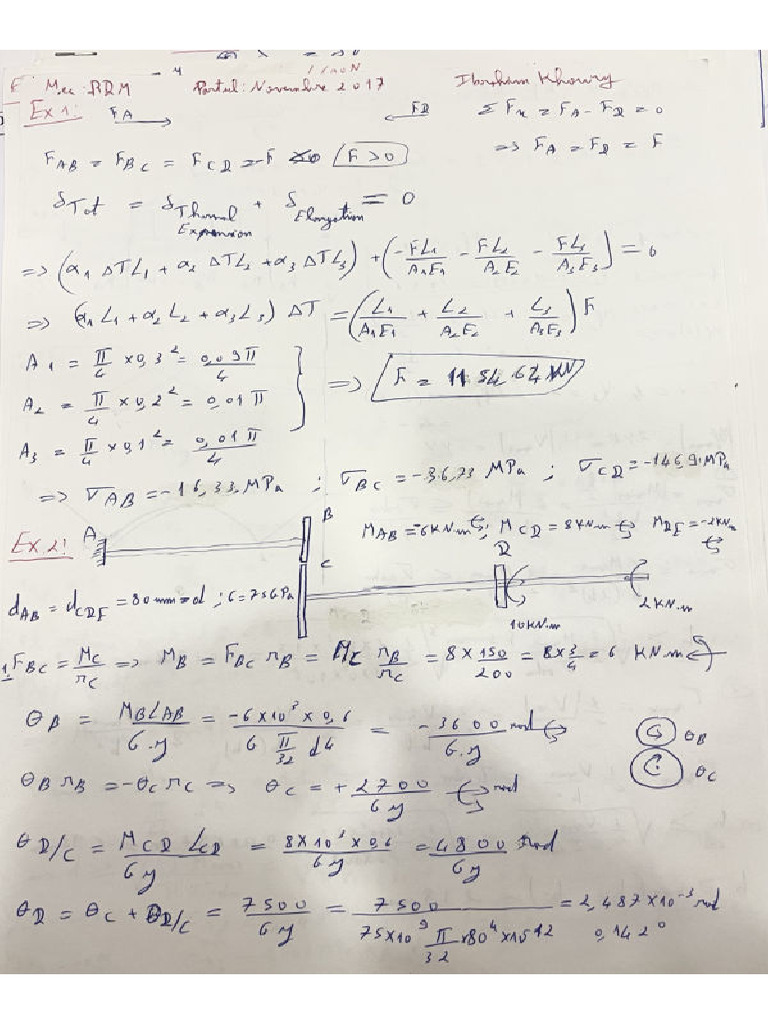 Mec RDM Partiel: Novembre 2017 Ibrahim Khoury
Ex 1: F_A → ← F_D Σ F_x = F_A - F_D = 0
F_AB = F_BC = F_CD = -F <0 (F > 0) => F_A = F_D = F
δ_Tot = δ_Thermal Expansion + δ_Elongation = 0
=> (α_1 ΔT L_1 + α_2 ΔT L_2 + α_3 ΔT L_3) + (-FL_1/A_1E_1 - FL_2/A_2E_2 - FL_3/A_3E_3) = 0
=> (α_1 L_1 + α_2 L_2 + α_3 L_3) ΔT = (L_1/A_1E_1 + L_2/A_2E_2 + L_3/A_3E_3) F
A_1 = π/4 × 0,3² = 0,09π/4
A_2 = π/4 × 0,2² = 0,01π => F = 1154,64 KN
A_3 = π/4 × 0,1² = 0,01π/4
=> σ_AB = -16,33 MPa ; σ_BC = -36,73 MPa ; σ_CD = -146,9 MPa
Ex 2: A B M_AB = -6KN.m ; M_CD = 8KN.m M_DE = -2KN.m
C D
d_AB = d_CDE = 80mm = d ; G = 75GPa 10KN.m 2KN.m
1 F_BC = M_C/r_C => M_B = F_BC r_B = M_C r_B/r_C = 8 × 150/200 = 8×3/4 = 6 KN.m
θ_B = M_B L_AB/G.J = -6×10³×0,6/G π/32 d4 = -3600/G.J rad θ_B
θ_B r_B = -θ_C r_C => θ_C = + 2700/GJ rad C θ_C
θ_D/C = M_CD L_CD/GJ = 8×10³×0,6/GJ = 4800/GJ rad
θ_D = θ_C + θ_D/C = 7500/GJ = 7500/75×10⁹ π/32 ×80⁴×10⁻¹² = 2,487×10⁻³ rad 0,142°